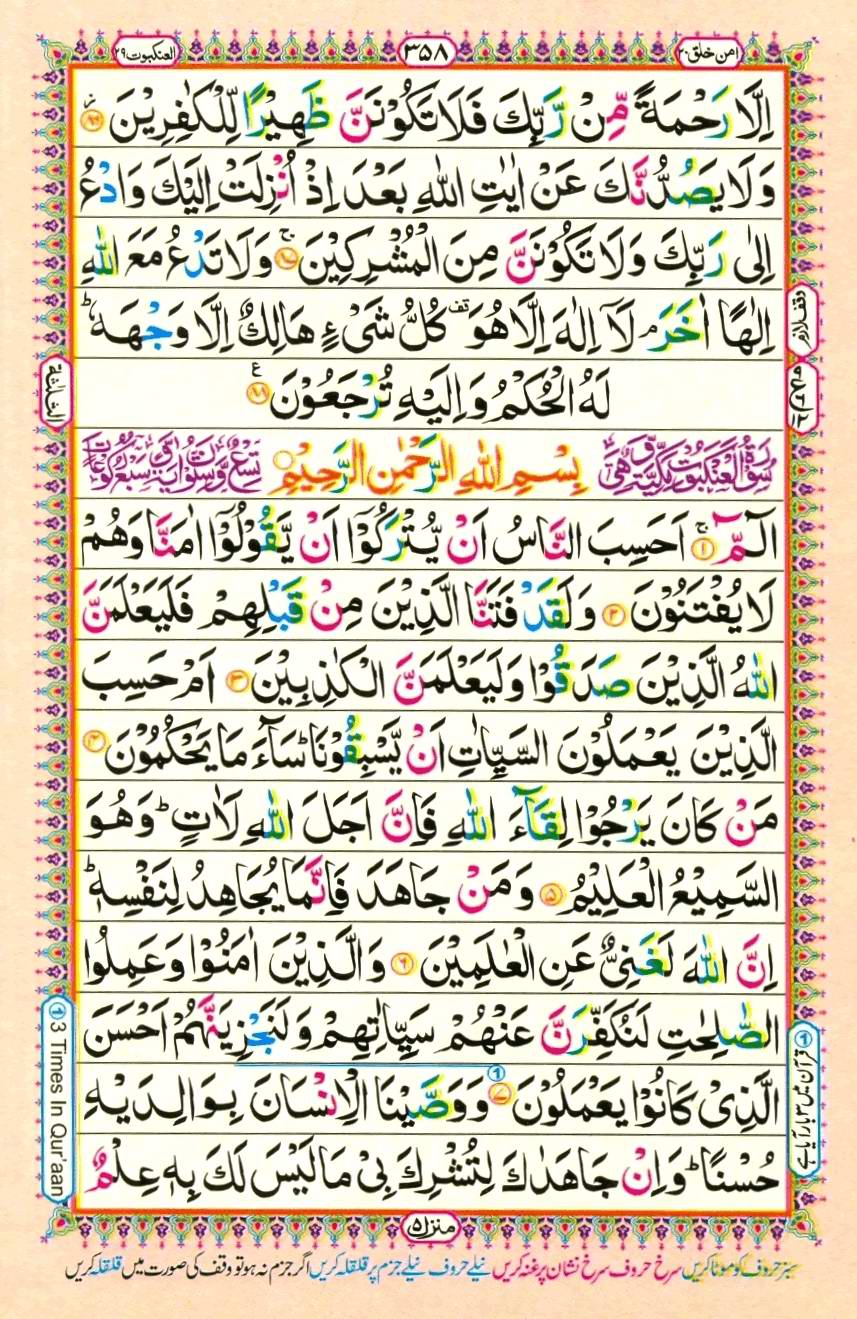 امن خلق ۲۰
۳۵۸
العنکبوت ۲۹
اِلَّا رَحْمَةً مِّنْ رَّبِّكَ فَلَا تَكُوْنَنَّ ظَهِيْرًا لِّلْكٰفِرِيْنَ ۸۶
وَلَا يَصُدُّنَّكَ عَنْ اٰيٰتِ اللّٰهِ بَعْدَ اِذْ اُنْزِلَتْ اِلَيْكَ وَادْعُ
اِلٰى رَبِّكَ وَلَا تَكُوْنَنَّ مِنَ الْمُشْرِكِيْنَ ۚ۸۷ وَلَا تَدْعُ مَعَ اللّٰهِ
اِلٰهًا اٰخَرَ ۘ لَاۤ اِلٰهَ اِلَّا هُوَ قف كُلُّ شَيْءٍ هَالِكٌ اِلَّا وَجْهَهٗ ؕ
لَهُ الْحُكْمُ وَاِلَيْهِ تُرْجَعُوْنَ ۸۸ ع
وقف لازم
الثلٰثة
سُوْرَةُ الْعَنْكَبُوْتِ مَكِّيَّةٌ وَّهِيَ
بِسْمِ اللّٰهِ الرَّحْمٰنِ الرَّحِيْمِ
تِسْعٌ وَّسِتُّوْنَ اٰيَةً وَّسَبْعُ رُكُوْعَاتٍ
الٓمّٓ ۚ۱ اَحَسِبَ النَّاسُ اَنْ يُّتْرَكُوْۤا اَنْ يَّقُوْلُوْۤا اٰمَنَّا وَهُمْ
لَا يُفْتَنُوْنَ ۲ وَلَقَدْ فَتَنَّا الَّذِيْنَ مِنْ قَبْلِهِمْ فَلَيَعْلَمَنَّ
اللّٰهُ الَّذِيْنَ صَدَقُوْا وَلَيَعْلَمَنَّ الْكٰذِبِيْنَ ۳ اَمْ حَسِبَ
الَّذِيْنَ يَعْمَلُوْنَ السَّيِّاٰتِ اَنْ يَّسْبِقُوْنَا ؕ سَآءَ مَا يَحْكُمُوْنَ ۴
مَنْ كَانَ يَرْجُوْا لِقَآءَ اللّٰهِ فَاِنَّ اَجَلَ اللّٰهِ لَاٰتٍ ؕ وَهُوَ
السَّمِيْعُ الْعَلِيْمُ ۵ وَمَنْ جَاهَدَ فَاِنَّمَا يُجَاهِدُ لِنَفْسِهٖ ؕ
اِنَّ اللّٰهَ لَغَنِيٌّ عَنِ الْعٰلَمِيْنَ ۶ وَالَّذِيْنَ اٰمَنُوْا وَعَمِلُوا
الصّٰلِحٰتِ لَنُكَفِّرَنَّ عَنْهُمْ سَيِّاٰتِهِمْ وَلَنَجْزِيَنَّهُمْ اَحْسَنَ
الَّذِيْ كَانُوْا يَعْمَلُوْنَ ۷ ① وَوَصَّيْنَا الْاِنْسَانَ بِوَالِدَيْهِ
حُسْنًا ؕ وَاِنْ جَاهَدٰكَ لِتُشْرِكَ بِيْ مَا لَيْسَ لَكَ بِهٖ عِلْمٌ
① قرآن میں ۳ بار آیا ہے
① 3 Times In Qur'aan
منزل ۵
سبز حروف کو موٹا کریں سرخ حروف سرخ نشان پر غنہ کریں نیلے حروف نیلے جزم پر قلقلہ کریں اگر جزم نہ ہو تو وقف کی صورت میں قلقلہ کریں